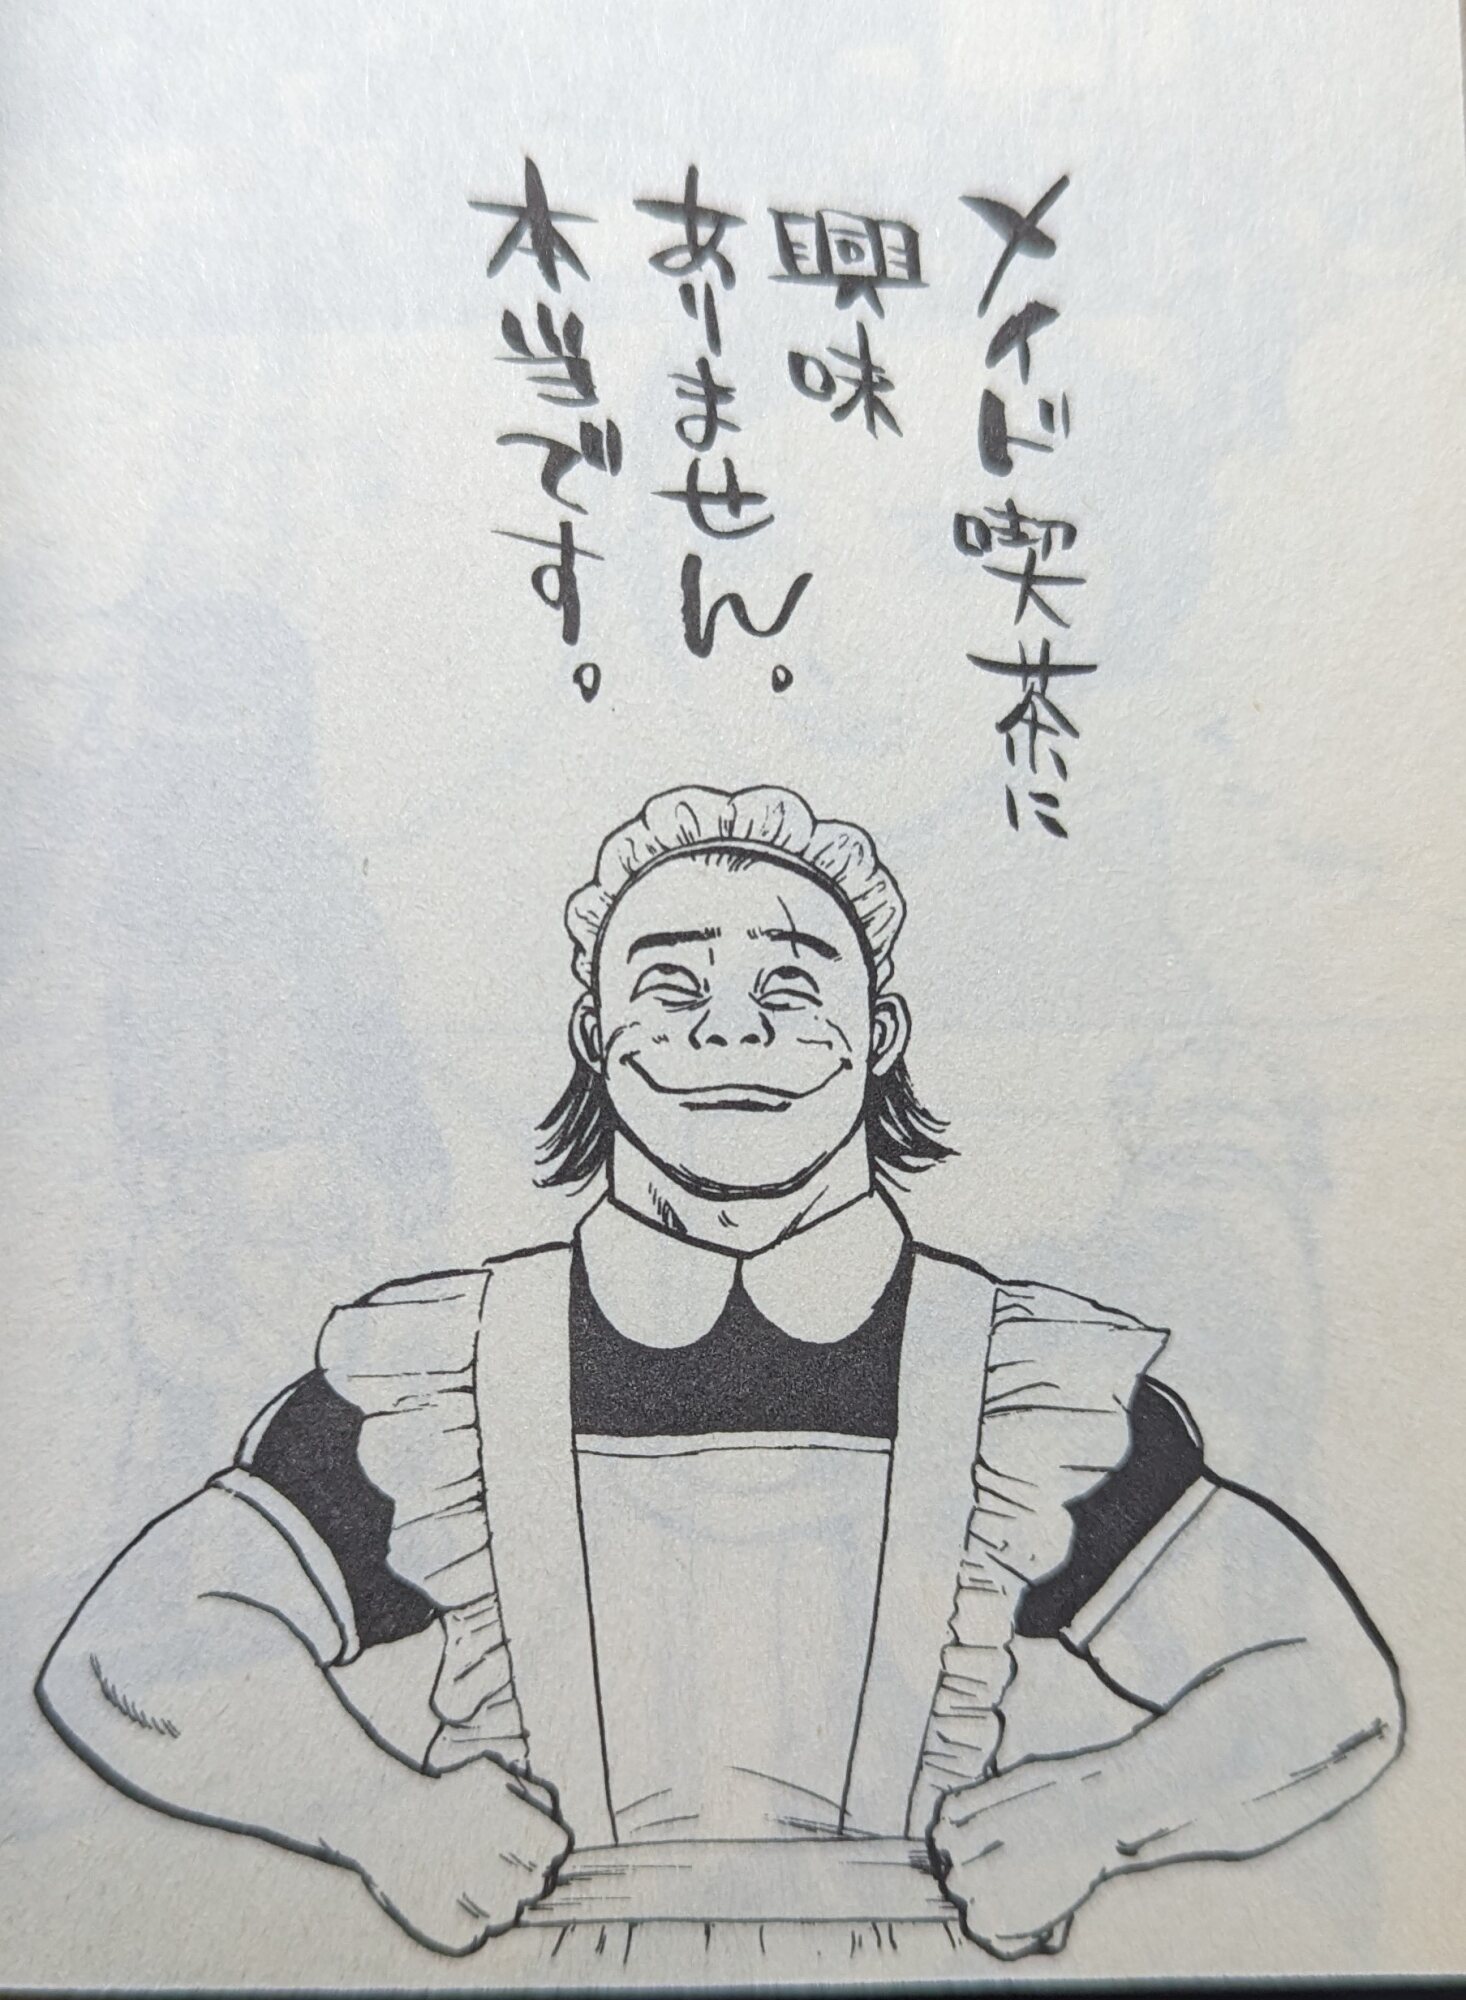 メイド喫茶に
興味
ありません。
本当です。